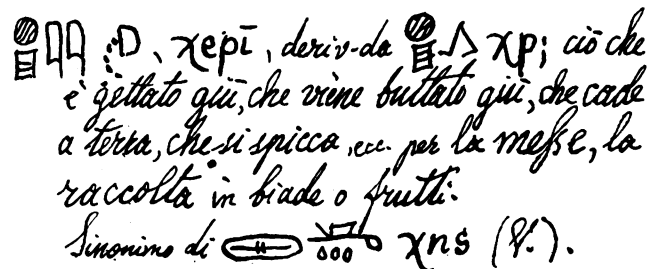 , χepī, deriv-da χp; ciò che
è gettato giù, che viene buttato giù, che cade
a terra, che si spicca, ecc. per la messe, la
raccolta in biade o frutti.
Sinonimo di χns (V.).